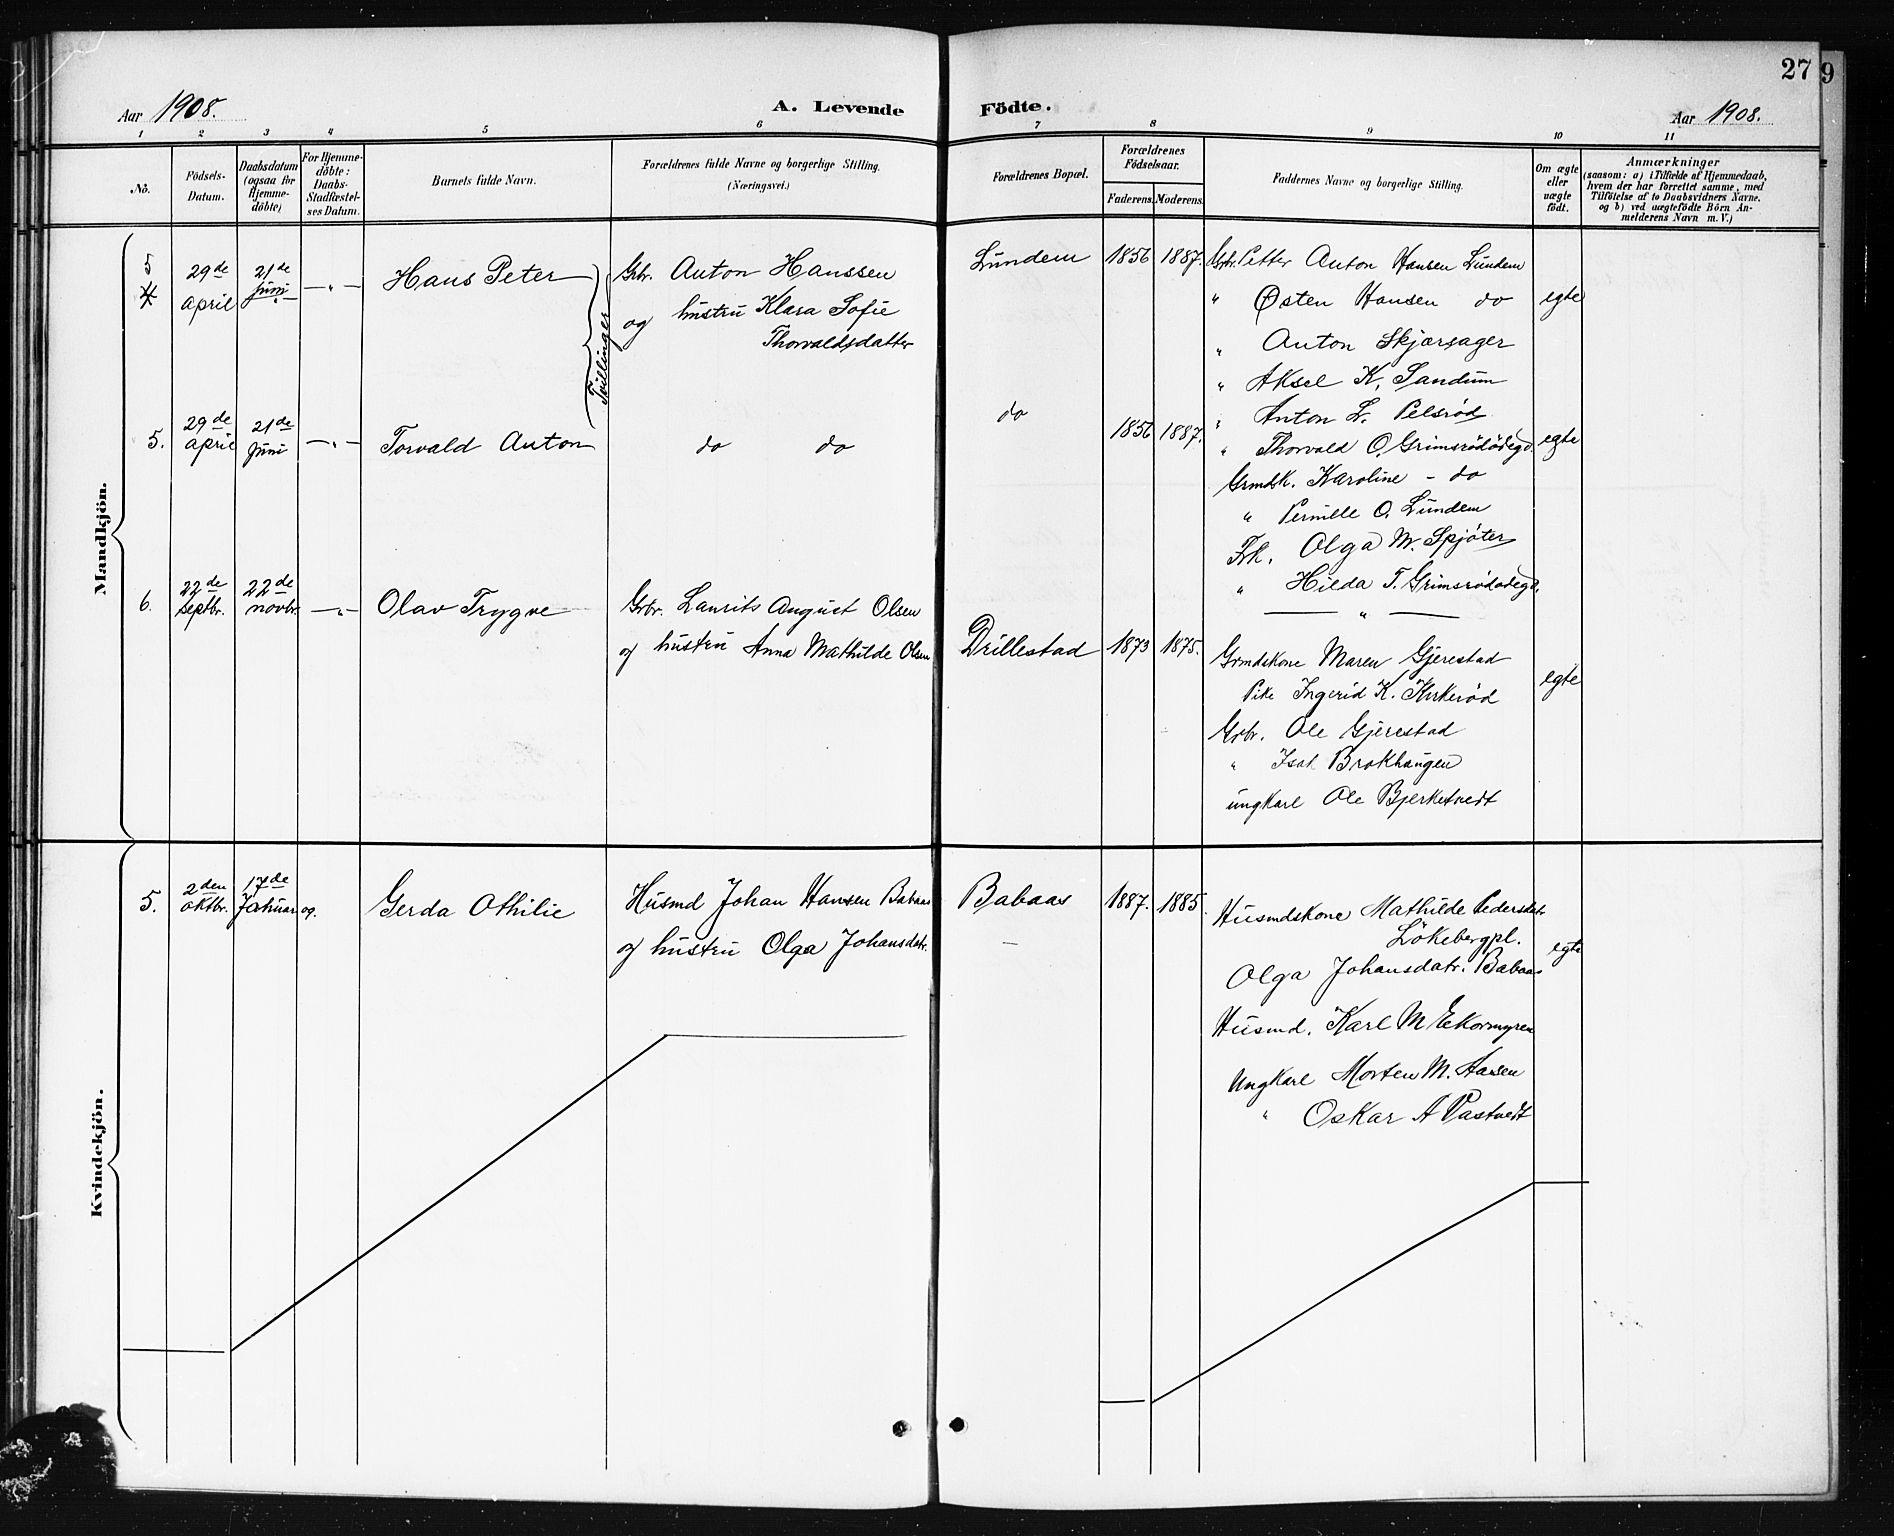 27
9
Aar 1908.
A. Levende
Födte.
Aar 1908.
1 2 3 4 5 6 7 8 9 10 11
No.
Födsels-
Datum.
Daabsdatum
(ogsaa for
Hjemme-
döbte)
For Hjemme-
döbte:
Daabs-
Stadfæstel-
ses Datum.
Barnets fulde Navn.
Forældrenes fulde Navne og borgerlige Stilling.
(Næringsvei.)
Forældrenes Bopæl.
Forældrenes
Födselsaar.
Faderens.
Moderens.
Faddernes Navne og borgerlige Stilling.
Om ægte
eller
uægte
födt.
Anmærkninger
(saasom: a) i Tilfælde af Hjemmedaab,
hvem der har forrettet samme, med
Tilföielse af to Daabsvidners Navne.
og b) ved uægtefödte Börn An-
melderens Navn m. V.)
Mandkjön.
5
4
29de
april
21de
Juni
— „ —
Hans Peter
Tvillinger
Gbr. Anton Hanssen
og hustru Klara Sofie
Thorvaldsdatter
Lundem
1856
1887.
Gbr. Petter Anton Hansen Lundem
" Østen Hansen do
" Anton Skjærsager
" Aksel K. Sandum
" Anton L. Pelsrød
egte
5.
29de
april
21de
Juni
— „ —
Torvald Anton
do do
do
1856
1887.
" Thorvald O. Grimsrödödegd.
Grmdsk. Karoline - do
" Pernille O. Lundem
Frk. Olga M. Spjøter
" Hilda T. Grimsrödödegd.
— " —
egte
6.
22de
septbr.
22de
novbr.
— „ —
Olav Trygve
Gbr. Laurits August Olsen
og hustru Anna Mathilde Olsen
Drillestad
1873
1875.
Grmdskone Maren Gjerestad
Pike Ingerid K. Kirkerød
Gbr. Ole Gjerestad
" Isak Brokhaugen
ungkarl Ole Bjerketvedt
egte
Kvindekjön.
5.
2den
oktbr.
17de
Januar
og.
Gerda Othilie
Husmd Johan Hansen Babaas
og hustru Olga Johansdatr.
Babaas
—
1887.
1885.
Husmdskone Mathilde Pedersdatr
Lökebergpl.
Olga Johansdatr. Babaas
Husmd. Karl M Ekormyren
Ungkarl Morten M. Aasen
" Oskar A Pastvedt
egte